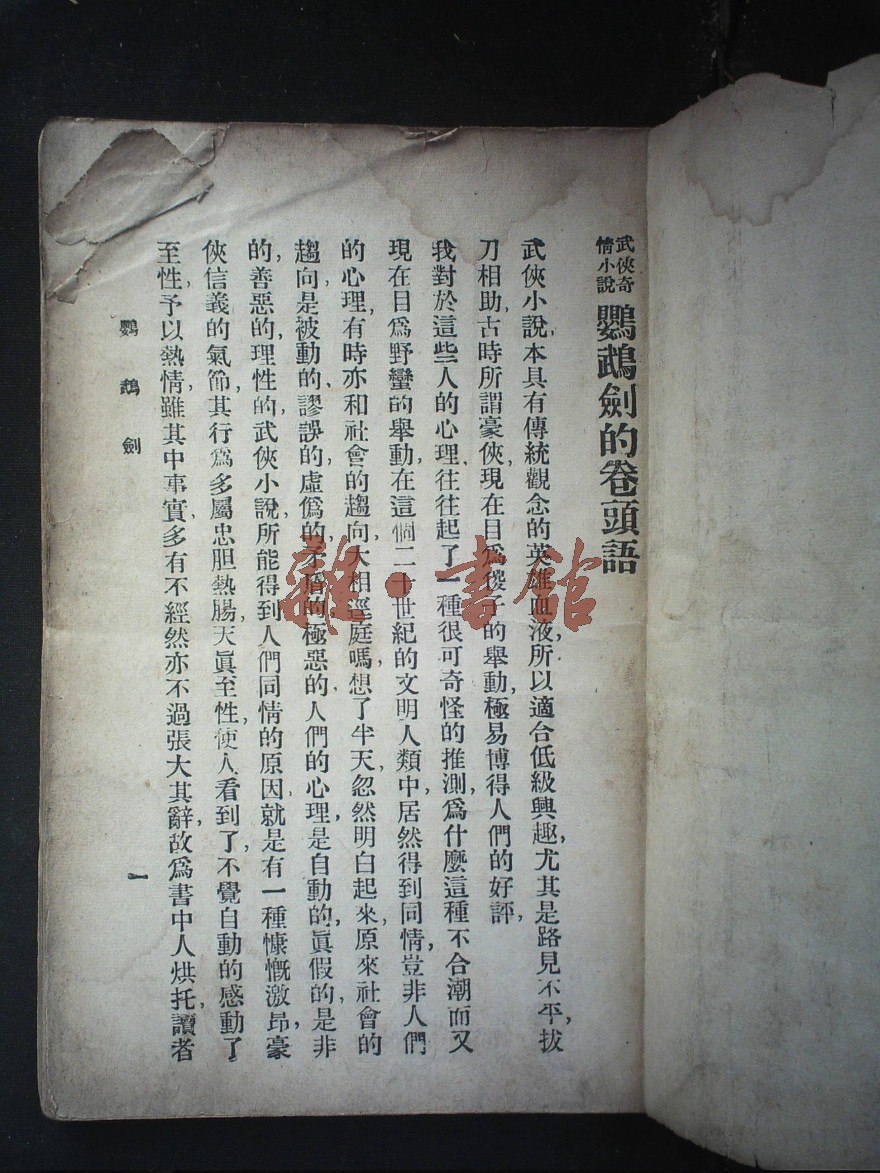 武俠奇情小說 鸚鵡劍的卷頭語
武俠小說,本具有傳統觀念的英雄血液,所以適合低級興趣,尤其是路見不平,拔
刀相助,古時所謂豪俠,現在目爲傻子的舉動,極易博得人們的好評,
我對於這些人的心理,往往起了一種很可奇怪的推測,爲什麼這種不合潮而又
現在目爲野蠻的舉動,在這個二十世紀的文明人類中,居然得到同情,豈非人們
的心理,有時亦和社會的趨向,大相逕庭嗎,想了半天,忽然明白起來,原來社會的
趨向是被動的,謬誤的,虛僞的,矛盾的,極惡的,人們的心理,是自動的,眞假的,是非
的,善惡的,理性的,武俠小說,所能得到人們同情的原因,就是有一種慷慨激昂,豪
俠信義的氣節,其行爲多屬忠胆熱腸,天眞至性,使人看到了,不覺自動的感動了
至性,予以熱情,雖其中事實,多有不經,然亦不過張大其辭,故爲書中人烘托,讀者
鸚鵡劍
一
雜·書館